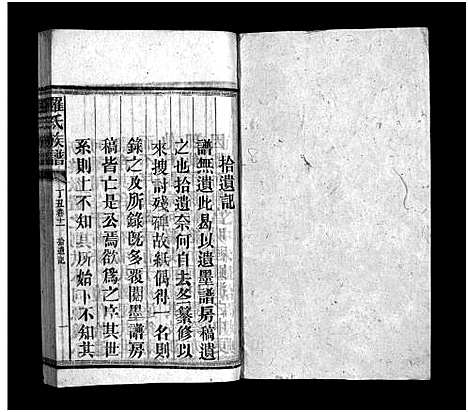 拾遺記
譜無遺此曷以遺墨譜房稿遺
之也拾遺奈何自去冬纂修以
來搜討殘碑故紙偶得一名則
錄之及所錄既多覆閱墨譜房
稿皆亡是公焉欲爲之序其世
系則上不知其所始下不知其
羅氏族譜
丁丑卷十一 拾遺記 一